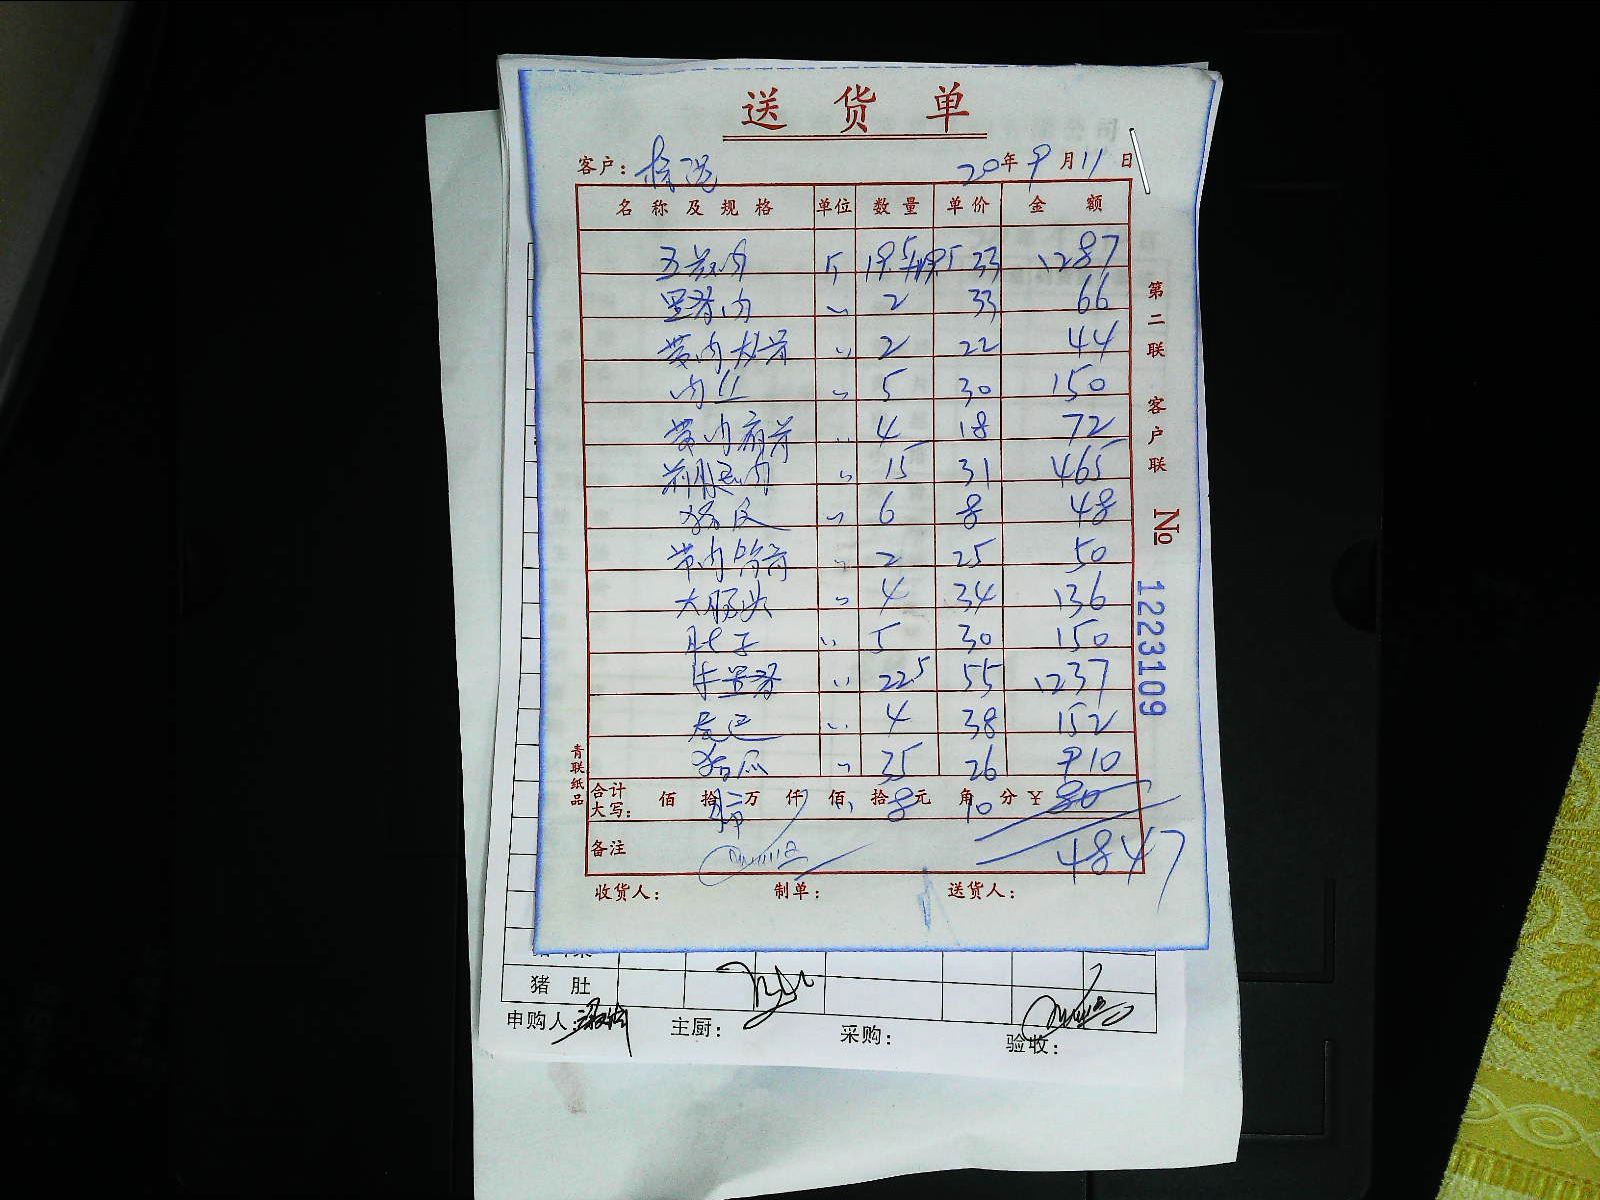 送货单
客户： 20年9月11日
名称及规格 单位 数量 单价 金额
五花肉 斤 19.5 33 1287
里脊肉 〃 2 33 66
带肉大骨 〃 2 22 44
肉丝 〃 5 30 150
带肉扇骨 〃 4 18 72
前腿肉 〃 15 31 465
猪皮 〃 6 8 48
带肉筒骨 〃 2 25 50
大肠头 〃 4 34 136
肚子 〃 5 30 150
牛里脊 〃 22.5 55 1237
尾巴 〃 4 38 152
猪爪 〃 35 26 910
合计大写： 佰 拾 万 仟 佰 拾 元 角 分 ¥ 80
8 10
备注 4847
收货人： 制单： 送货人：
第二联 客户联 No 1223109
青联纸品
猪肚
申购人： 主厨： 采购： 验收：